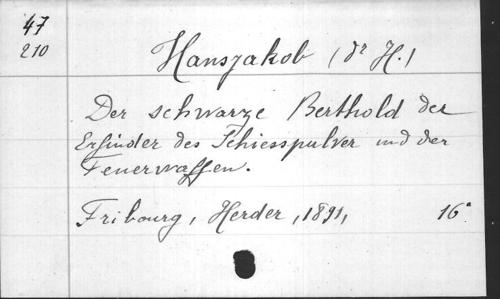 47
210
Hansjakob (dr H.)
Der schwarze Berthold der
Erfinder des Schiesspulver und der
Feuerwaffen.
Fribourg, Herder, 1891, 16°